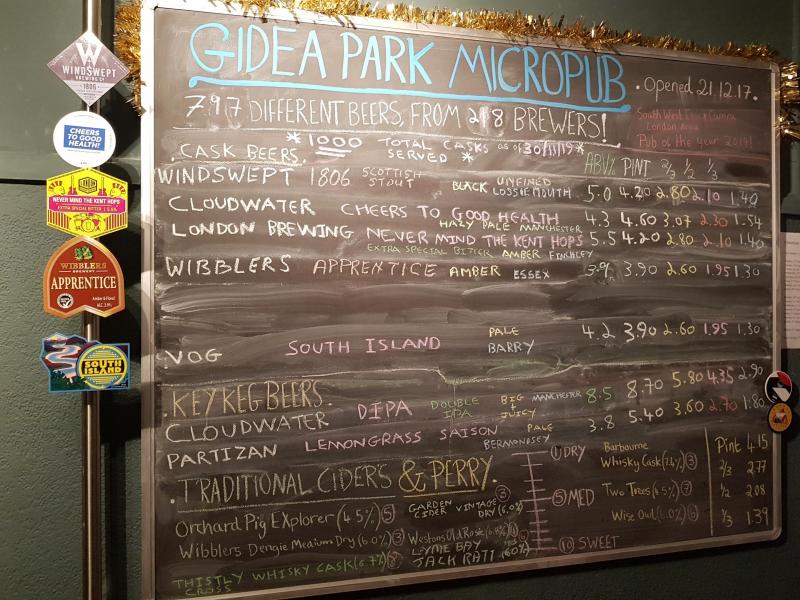 GIDEA PARK MICROPUB
. Opened 21.12.17.
797 DIFFERENT BEERS, FROM 218 BREWERS!
South West Essex Camra
London Area
Pub of the year 2019!
* 1000 TOTAL CASKS as of 30/11/19 *
SERVED *
CASK BEERS.
ABV% PINT 2/3 1/2 1/3
WINDSWEPT 1806 SCOTTISH STOUT BLACK UNFINED LOSSIEMOUTH 5.0 4.20 2.80 2.10 1.40
CLOUDWATER CHEERS TO GOOD HEALTH 4.3 4.60 3.07 2.30 1.54
HAZY PALE MANCHESTER
LONDON BREWING NEVER MIND THE KENT HOPS 5.5 4.20 2.80 2.10 1.40
EXTRA SPECIAL BITTER AMBER FINCHLEY
WIBBLERS APPRENTICE AMBER ESSEX 3.9 3.90 2.60 1.95 1.30
VOG SOUTH ISLAND PALE BARRY 4.2 3.90 2.60 1.95 1.30
KEY KEG BEERS.
CLOUDWATER DIPA DOUBLE IPA BIG + JUICY MANCHESTER 8.5 8.70 5.80 4.35 2.90
PARTIZAN LEMONGRASS SAISON PALE BERMONDSEY 3.8 5.40 3.60 2.70 1.80
. TRADITIONAL CIDERS & PERRY.
Orchard Pig Explorer (4.5%) 5
GARDEN CIDER VINTAGE DRY (6.0%) 3
Wibblers Dengie Medium Dry (6.0%) 3
Westons Old Rosie
LYME BAY
JACK RATT (6.0%)
THISTLY CROSS WHISKY CASK (6.7%)
1 DRY
5 MED
10 SWEET
Barbourne
Whisky Cask 3
Two Trees 7
Wise Owl 6
Pint 4.15
2/3 2.77
1/2 2.08
1/3 1.39
WINDSWEPT
BREWING CO
1806
CHEERS
TO GOOD
HEALTH!
NEVER MIND THE KENT HOPS
EXTRA SPECIAL BITTER | 5.5%
WIBBLERS
BREWERY
APPRENTICE
Amber & Floral
ALC. 3.9%
SOUTH
ISLAND